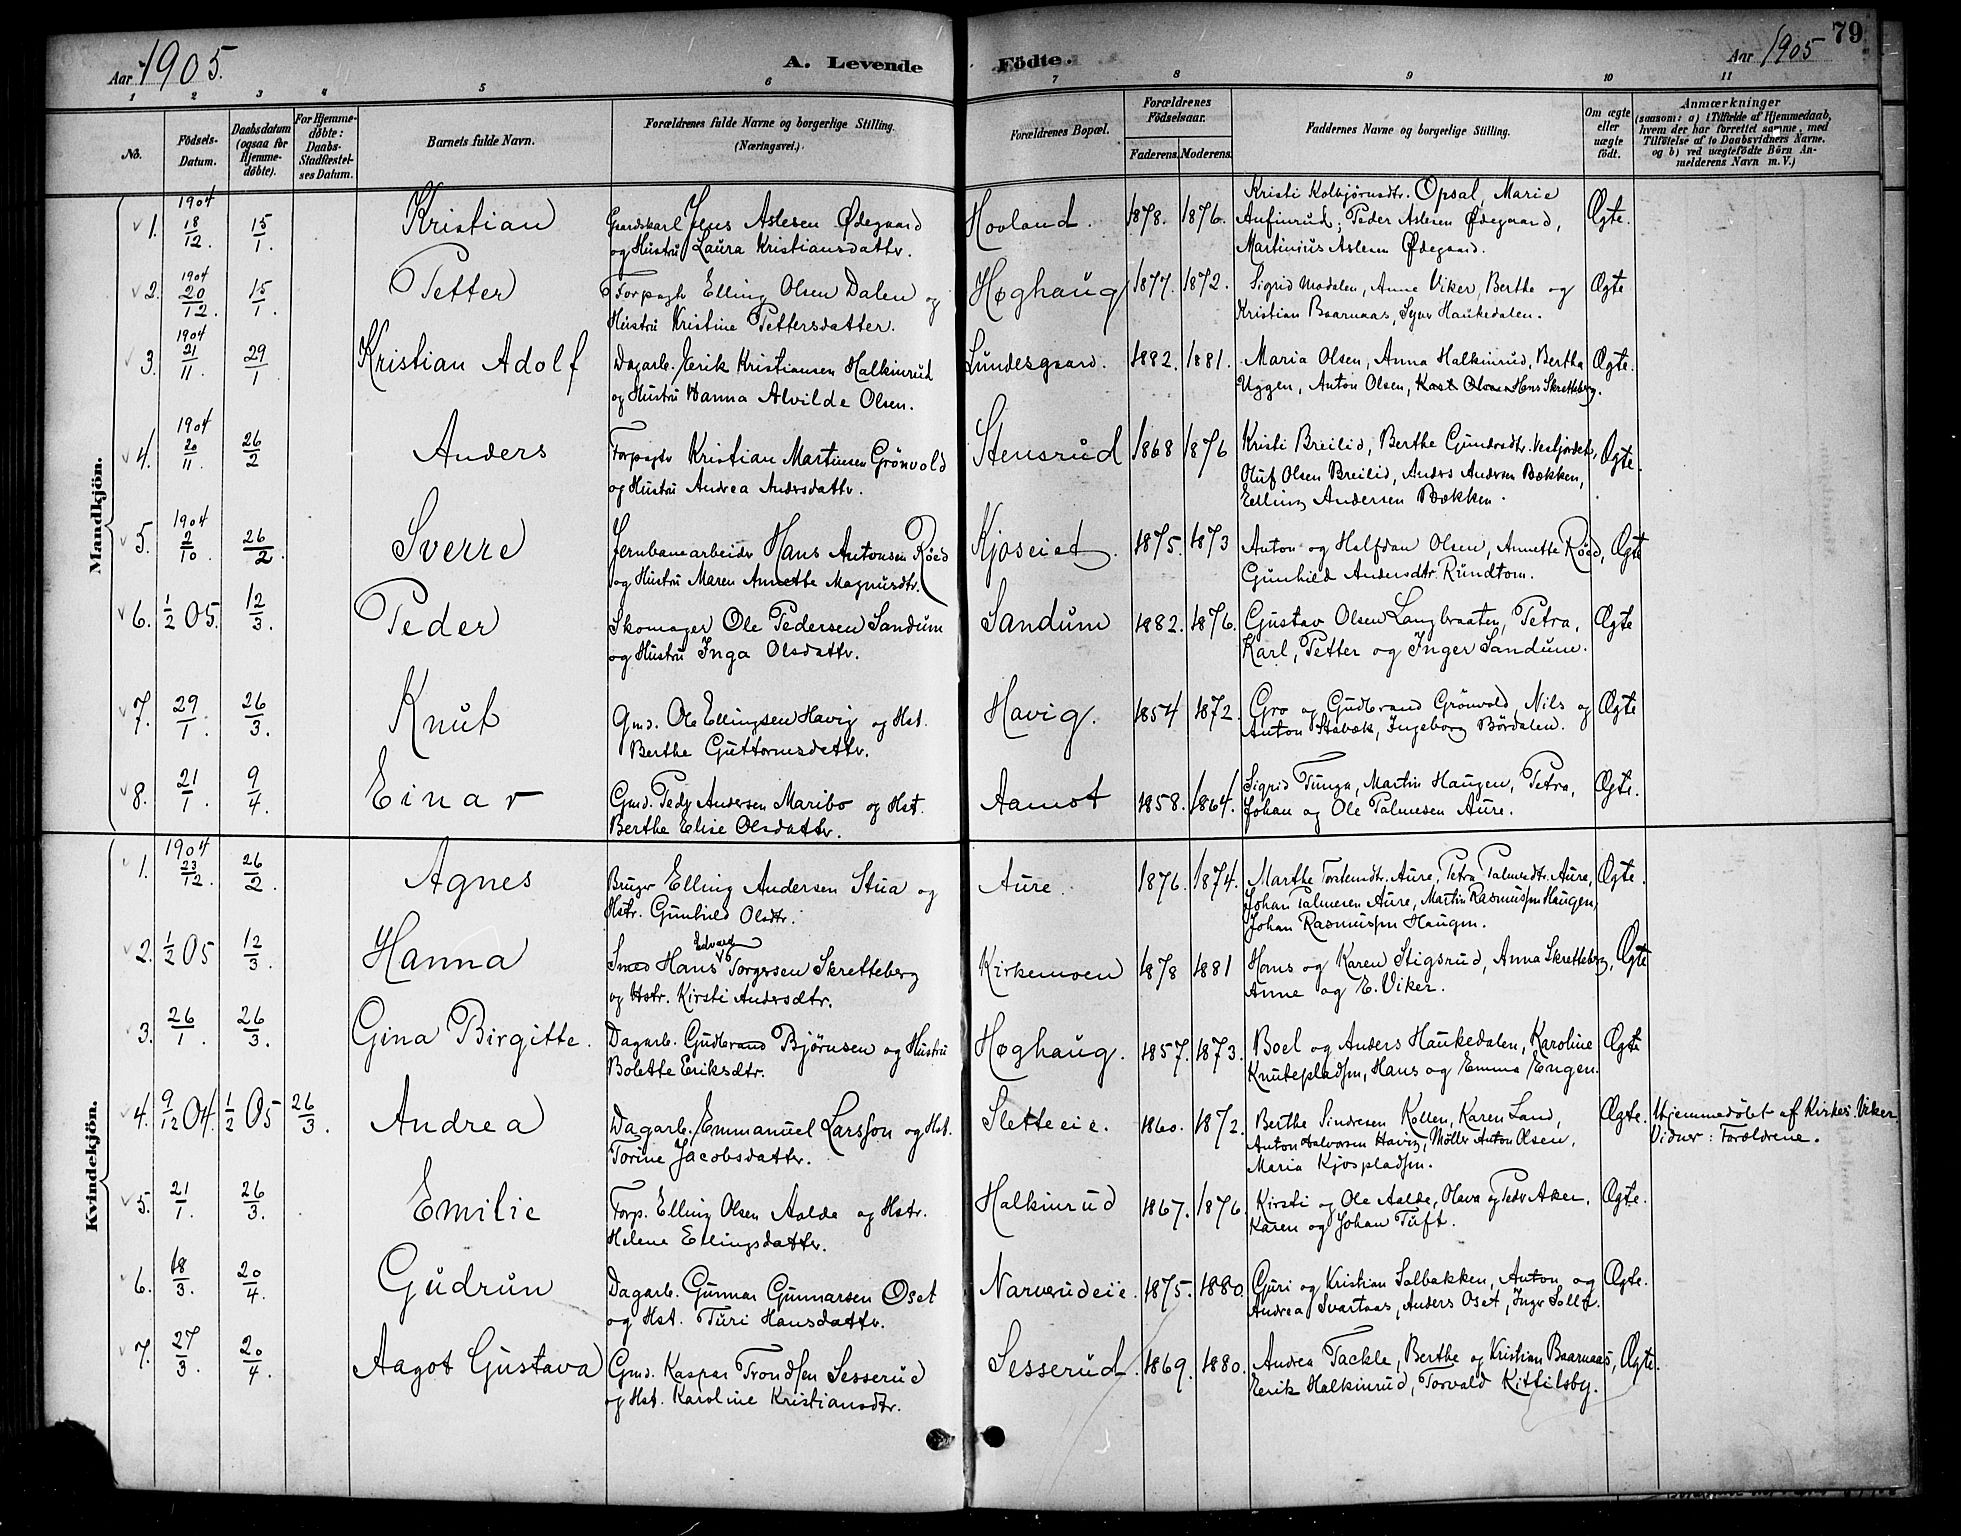 Aar 1905. A. Levende Födte. Aar 1905 79
1 2 3 4 5 6 7 8 9 10 11
No.
Födsels-Datum.
Daabsdatum (ogsaa for Hjemme-døbte).
For Hjemme-døbte: Daabs-Stadfæstel-ses Datum.
Barnets fulde Navn.
Forældrenes fulde Navne og borgerlige Stilling. (Næringsvei.)
Forældrenes Bopæl.
Forældrenes Födselsaar.
Faderens. Moderens.
Faddernes Navne og borgerlige Stilling.
Om ægte eller uægte födt.
Anmærkninger
(saasom: a) i Tilfælde af Hjemmedaab,
hvem der har forrettet samme, med
Tilföielse af to Daabsvidners Navne,
og b) ved uægtefödte Börn An-
melderens Navn m. V.)
Mandkjön.
1. 1904 18/12. 15/1. Kristian Gaardskarl Jens Aslesen Ødegaard
og Hustru Laura Kristiansdattr. Hovland. 1878. 1876. Kristi Kolbjørnsdtr. Opsal, Marie
Anfinrud; Peder Aslesen Ødegaard,
Martinius Aslesen Ødegaard. Ægte.
2. 1904 20/12. 15/1. Petter Forpagtr Elling Olsen Dalen og
Hustru Kristine Pettersdatter. Høghaug 1877. 1872. Sigrid Modalen, Anne Viker, Berthe og
Kristian Baarnaas, Syver Haukedalen. Ægte
3. 1904 21/11. 29/1. Kristian Adolf Dagarb. Erik Kristiansen Halkinrud
og Hustru Hanna Alvilde Olsen. Lundesgaard. 1882. 1881. Maria Olsen, Anna Halkinrud, Bertha
Uggen, Anton Olsen, Hans Skretteberg. Ægte.
4. 1904 20/11. 26/2 Anders Forpagtr Kristian Martinsen Grönvold
og Hustru Andrea Andersdattr. Stensrud 1868 1876 Kristi Breilid, Berthe Gundersdtr. Vestjordet,
Oluf Olsen Breilid, Anders Andersen Bækken,
Elling Andersen Bækken. Ægte.
5. 1904 2/10. 26/2. Sverre Jernbanearbeidr Hans Antonsen Röed
og Hustru Maren Annette Magnusdtr. Kjoseiet. 1875. 1873 Anton og Halfdan Olsen, Annette Röed,
Gunhild Andersdtr. Rundtom. Ægte
6. 1/2 05. 12/3. Peder Skomager Ole Pedersen Sandum
og Hustru Inga Olsdattr. Sandum 1882. 1876. Gustav Olsen Langbraaten, Petra,
Karl, Petter og Inger Sandum. Ægte
7. 29/1. 26/3. Knut Gmd. Ole Ellingsen Havig og Hst.
Berthe Guttormsdattr. Havig. 1854 1872. Gro og Gudbrand Grönvold, Nils og
Anton Stabæk, Ingeborg Bördalen. Ægte
8. 21/1. 9/4. Einar Gmd. Pedr Andersen Maribo og Hst.
Berthe Elise Olsdattr. Aamot 1858. 1864. Sigrid Tunga, Martin Haugen, Petra,
Johan og Ole Palmesen Aure. Ægte.
Kvindekjön.
1. 1904 23/12. 26/2. Agnes Bruger Elling Andersen Stua og
Hstr. Gunhild Olsdtr. Aure. 1876. 1874. Marthe Torstensdtr. Aure, Petra Palmesdtr. Aure,
Johan Palmesen Aure, Martin Rasmussen Haugen,
Johan Rasmussen Haugen. Ægte.
2. 1/2 05 12/3. Hanna Smed Hans Edvard Torgersen Skretteberg
og Hstr. Kirsti Andersdtr. Kirkemoen 1878 1881 Hans og Karen Stigsrud, Anna Skretteberg,
Anne og E. Viker. Ægte
3. 26/1. 26/3. Gina Birgitte. Dagarb. Gudbrand Bjørnsen og Hustru
Bolette Eriksdtr. Høghaug. 1857. 1873. Boel og Anders Haukedalen, Karoline
Knutepladsen, Hans og Emma Engen. Ægte
4. 9/12 04. 1/2 05 26/3. Andrea Dagarb. Emmanuel Larsson og Hst.
Torine Jacobsdattr. Sletteeie. 1860. 1872. Berthe Sindresen Kollen, Karen Land,
Anton Halvorsen Havig, Møller Anton Olsen,
Maria Kjøspladsen. Ægte. Hjemmedøbt af Kirkes. Viker.
Vidner: Forældrene.
5. 21/1. 26/3. Emilie Forp. Elling Olsen Aalde og Hstr.
Helene Ellingsdattr. Halkinrud 1867. 1876. Kirsti og Ole Aalde, Olava og Pedr Aker,
Karen og Johan Tuft. Ægte.
6. 18/3. 20/4. Gudrun Dagarb. Gunnar Gunnarsen Oset
og Hst. Turi Hansdattr. Narverudeie. 1875. 1880. Guri og Kristian Solbakken, Anton og
Andrea Svartaas, Anders Oset, Ingr Sollt. Ægte.
7. 27/3. 20/4. Aagot Gustava Gmd. Kaspar Trondsen Sesserud
og Hst. Karoline Kristiansdtr. Sesserud. 1869. 1880. Andrea Tackle, Berthe og Kristian Baarnaas,
Erik Halkinrud, Torvald Kittilsby. Ægte.